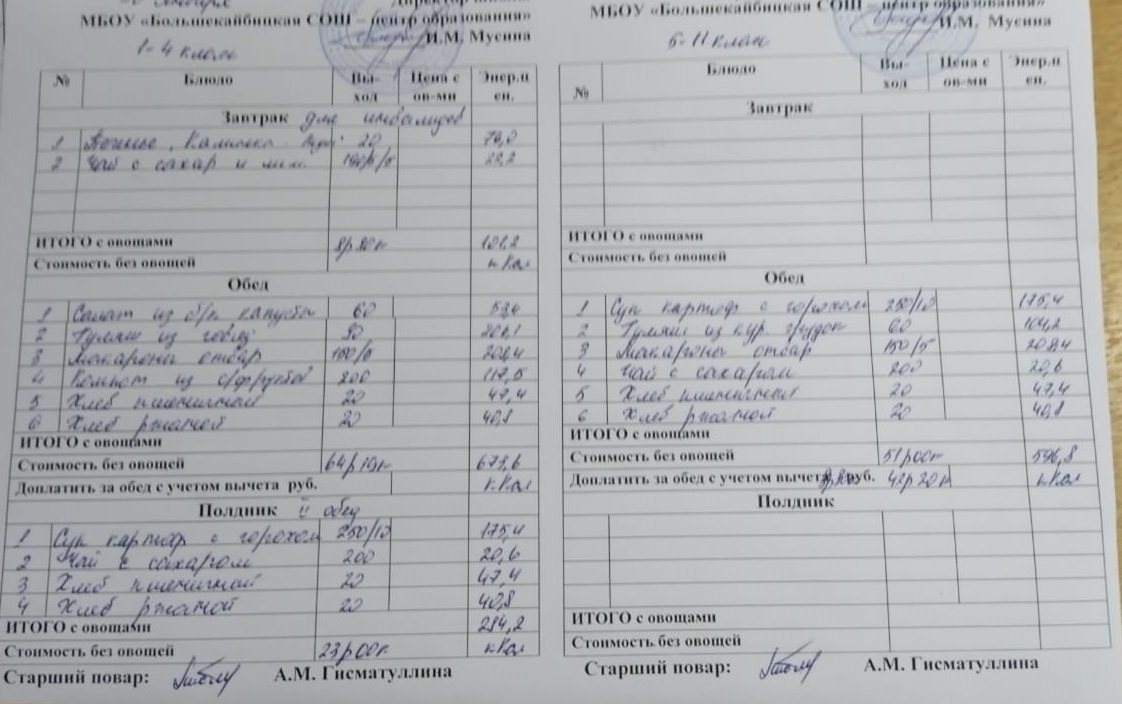 МБОУ «Большекайбицкая СОШ – центр образования»
И.М. Мусина
1-4 класс
№ Блюдо Вы-ход Цена с ов-ми Энер.ц ен.
Завтрак для инвалидов
1 Печенье 20
2 Чай с сахар и лим.
ИТОГО с овощами 8р80к 101,2
Стоимость без овощей кКал
Обед
1 Салат из капусты 60
2 Гуляш из говяд
3 Макароны отвар 208,4
4 Компот из с/фруктов 200 117,5
5 Хлеб пшеничной 20 47,4
6 Хлеб ржаной 20 40,8
ИТОГО с овощами
Стоимость без овощей 673,6
Доплатить за обед с учетом вычета руб. кКал
Полдник II обед
1 Суп картоф с горохом 250/10 175,4
2 Чай с сахаром 200 20,6
3 Хлеб пшеничной 20 47,4
4 Хлеб ржаной 20 40,8
ИТОГО с овощами 284,2
Стоимость без овощей 23р00к кКал
Старший повар: А.М. Гисматуллина
МБОУ «Большекайбицкая СОШ – центр образования»
И.М. Мусина
5-11 класс
№ Блюдо Вы-ход Цена с ов-ми Энер.ц ен.
Завтрак
ИТОГО с овощами
Стоимость без овощей
Обед
1 Суп картоф с горохом 250/10 175,4
2 Гуляш из кур. грудок 104,2
3 Макароны отвар 150/5 208,4
4 Чай с сахаром 200 20,6
5 Хлеб пшеничных 20 47,4
6 Хлеб ржаной 20 40,8
ИТОГО с овощами
Стоимость без овощей 51р00к 596,8
Доплатить за обед с учетом вычета руб. 42р20к кКал
Полдник
ИТОГО с овощами
Стоимость без овощей
Старший повар: А.М. Гисматуллина